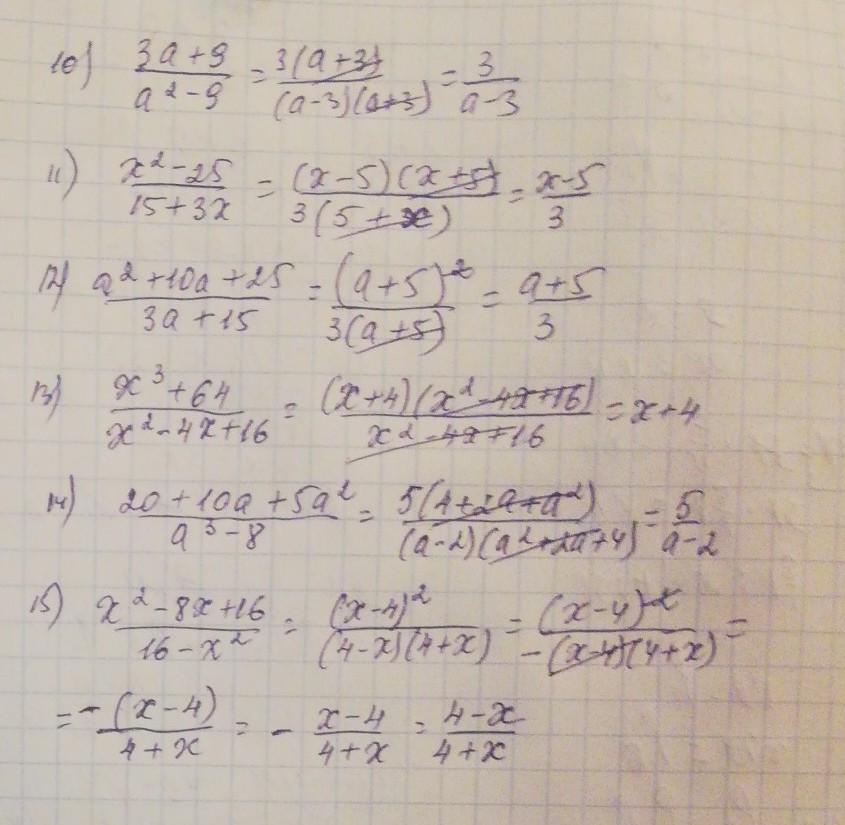 10) (3a+9)/(a²-9) = 3(a+3)/((a-3)(a+3)) = 3/(a-3)
11) (x²-25)/(15+3x) = (x-5)(x+5)/(3(5+x)) = (x-5)/3
12) (a²+10a+25)/(3a+15) = (a+5)²/(3(a+5)) = (a+5)/3
13) (x³+64)/(x²-4x+16) = (x+4)(x²-4x+16)/(x²-4x+16) = x+4
14) (20+10a+5a²)/(a³-8) = 5(4+2a+a²)/((a-2)(a²+2a+4)) = 5/(a-2)
15) (x²-8x+16)/(16-x²) = (x-4)²/((4-x)(4+x)) = (x-4)²/(-(x-4)(4+x)) =
= -(x-4)/(4+x) = - (x-4)/(4+x) = (4-x)/(4+x)